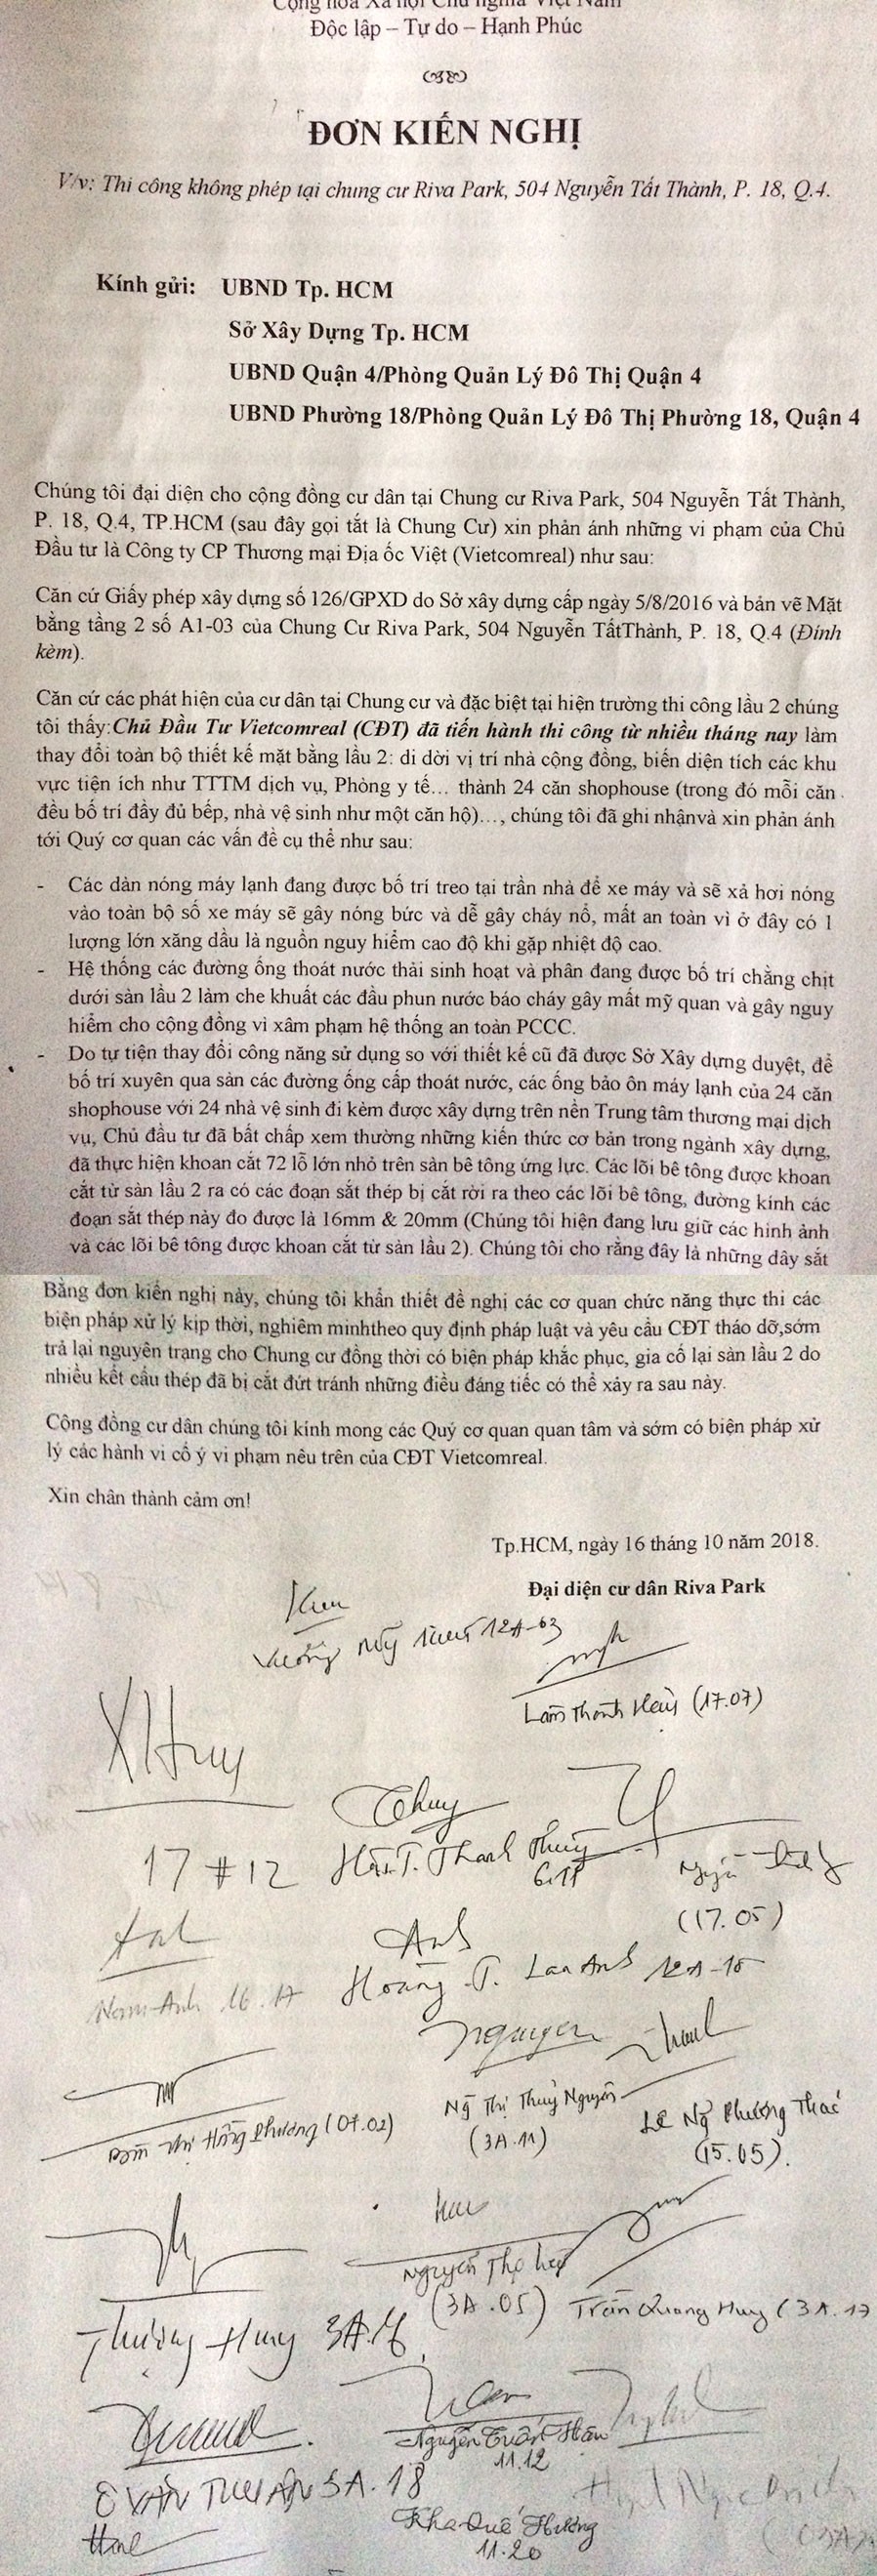 Cộng hòa Xã hội Chủ nghĩa Việt Nam
Độc lập – Tự do – Hạnh Phúc
ĐƠN KIẾN NGHỊ
V/v: Thi công không phép tại chung cư Riva Park, 504 Nguyễn Tất Thành, P. 18, Q.4.
Kính gửi: UBND Tp. HCM
Sở Xây Dựng Tp. HCM
UBND Quận 4/Phòng Quản Lý Đô Thị Quận 4
UBND Phường 18/Phòng Quản Lý Đô Thị Phường 18, Quận 4
Chúng tôi đại diện cho cộng đồng cư dân tại Chung cư Riva Park, 504 Nguyễn Tất Thành,
P. 18, Q.4, TP.HCM (sau đây gọi tắt là Chung Cư) xin phản ánh những vi phạm của Chủ
Đầu tư là Công ty CP Thương mại Địa ốc Việt (Vietcomreal) như sau:
Căn cứ Giấy phép xây dựng số 126/GPXD do Sở xây dựng cấp ngày 5/8/2016 và bản vẽ Mặt
bằng tầng 2 số A1-03 của Chung Cư Riva Park, 504 Nguyễn TấtThành, P. 18, Q.4 (Đính
kèm).
Căn cứ các phát hiện của cư dân tại Chung cư và đặc biệt tại hiện trường thi công lầu 2 chúng
tôi thấy:Chủ Đầu Tư Vietcomreal (CĐT) đã tiến hành thi công từ nhiều tháng nay làm
thay đổi toàn bộ thiết kế mặt bằng lầu 2: di dời vị trí nhà cộng đồng, biến diện tích các khu
vực tiện ích như TTTM dịch vụ, Phòng y tế… thành 24 căn shophouse (trong đó mỗi căn
đều bố trí đầy đủ bếp, nhà vệ sinh như một căn hộ)…, chúng tôi đã ghi nhậnvà xin phản ánh
tới Quý cơ quan các vấn đề cụ thể như sau:
- Các dàn nóng máy lạnh đang được bố trí treo tại trần nhà để xe máy và sẽ xả hơi nóng
vào toàn bộ số xe máy sẽ gây nóng bức và dễ gây cháy nổ, mất an toàn vì ở đây có 1
lượng lớn xăng dầu là nguồn nguy hiểm cao độ khi gặp nhiệt độ cao.
- Hệ thống các đường ống thoát nước thải sinh hoạt và phân đang được bố trí chằng chịt
dưới sàn lầu 2 làm che khuất các đầu phun nước báo cháy gây mất mỹ quan và gây nguy
hiểm cho cộng đồng vì xâm phạm hệ thống an toàn PCCC.
- Do tự tiện thay đổi công năng sử dụng so với thiết kế cũ đã được Sở Xây dựng duyệt, để
bố trí xuyên qua sàn các đường ống cấp thoát nước, các ống bảo ôn máy lạnh của 24 căn
shophouse với 24 nhà vệ sinh đi kèm được xây dựng trên nền Trung tâm thương mại dịch
vụ, Chủ đầu tư đã bất chấp xem thường những kiến thức cơ bản trong ngành xây dựng,
đã thực hiện khoan cắt 72 lỗ lớn nhỏ trên sàn bê tông ứng lực. Các lõi bê tông được khoan
cắt từ sàn lầu 2 ra có các đoạn sắt thép bị cắt rời ra theo các lõi bê tông, đường kính các
đoạn sắt thép này đo được là 16mm & 20mm (Chúng tôi hiện đang lưu giữ các hình ảnh
và các lõi bê tông được khoan cắt từ sàn lầu 2). Chúng tôi cho rằng đây là những dây sắt
Bằng đơn kiến nghị này, chúng tôi khẩn thiết đề nghị các cơ quan chức năng thực thi các
biện pháp xử lý kịp thời, nghiêm minhtheo quy định pháp luật và yêu cầu CĐT tháo dỡ,sớm
trả lại nguyên trạng cho Chung cư đồng thời có biện pháp khắc phục, gia cố lại sàn lầu 2 do
nhiều kết cấu thép đã bị cắt đứt tránh những điều đáng tiếc có thể xảy ra sau này.
Cộng đồng cư dân chúng tôi kính mong các Quý cơ quan quan tâm và sớm có biện pháp xử
lý các hành vi cố ý vi phạm nêu trên của CĐT Vietcomreal.
Xin chân thành cảm ơn!
Tp.HCM, ngày 16 tháng 10 năm 2018.
Đại diện cư dân Riva Park
12A-03
Lâm Thanh (17.07)
XHuy
Thuy
17 # 12
T. Thanh Thủy
6.11
(17.05)
Anh
Nam Anh 16.17
Hoàng T. Lan Anh 12A-18
Nguyen
Thị Hồng Phương (07.02)
Ng Thị Thuỷ Nguyên
(3A.11)
Lê Ng Phương Thảo
(15.05).
Nguyễn Thọ
(3A.05)
Trần Quang Huy (3A.17
Hùng 3A.16
Nguyễn Tuấn
11.12
VĂN THUẬN 3A.18
Kha Quế Hương
11.20